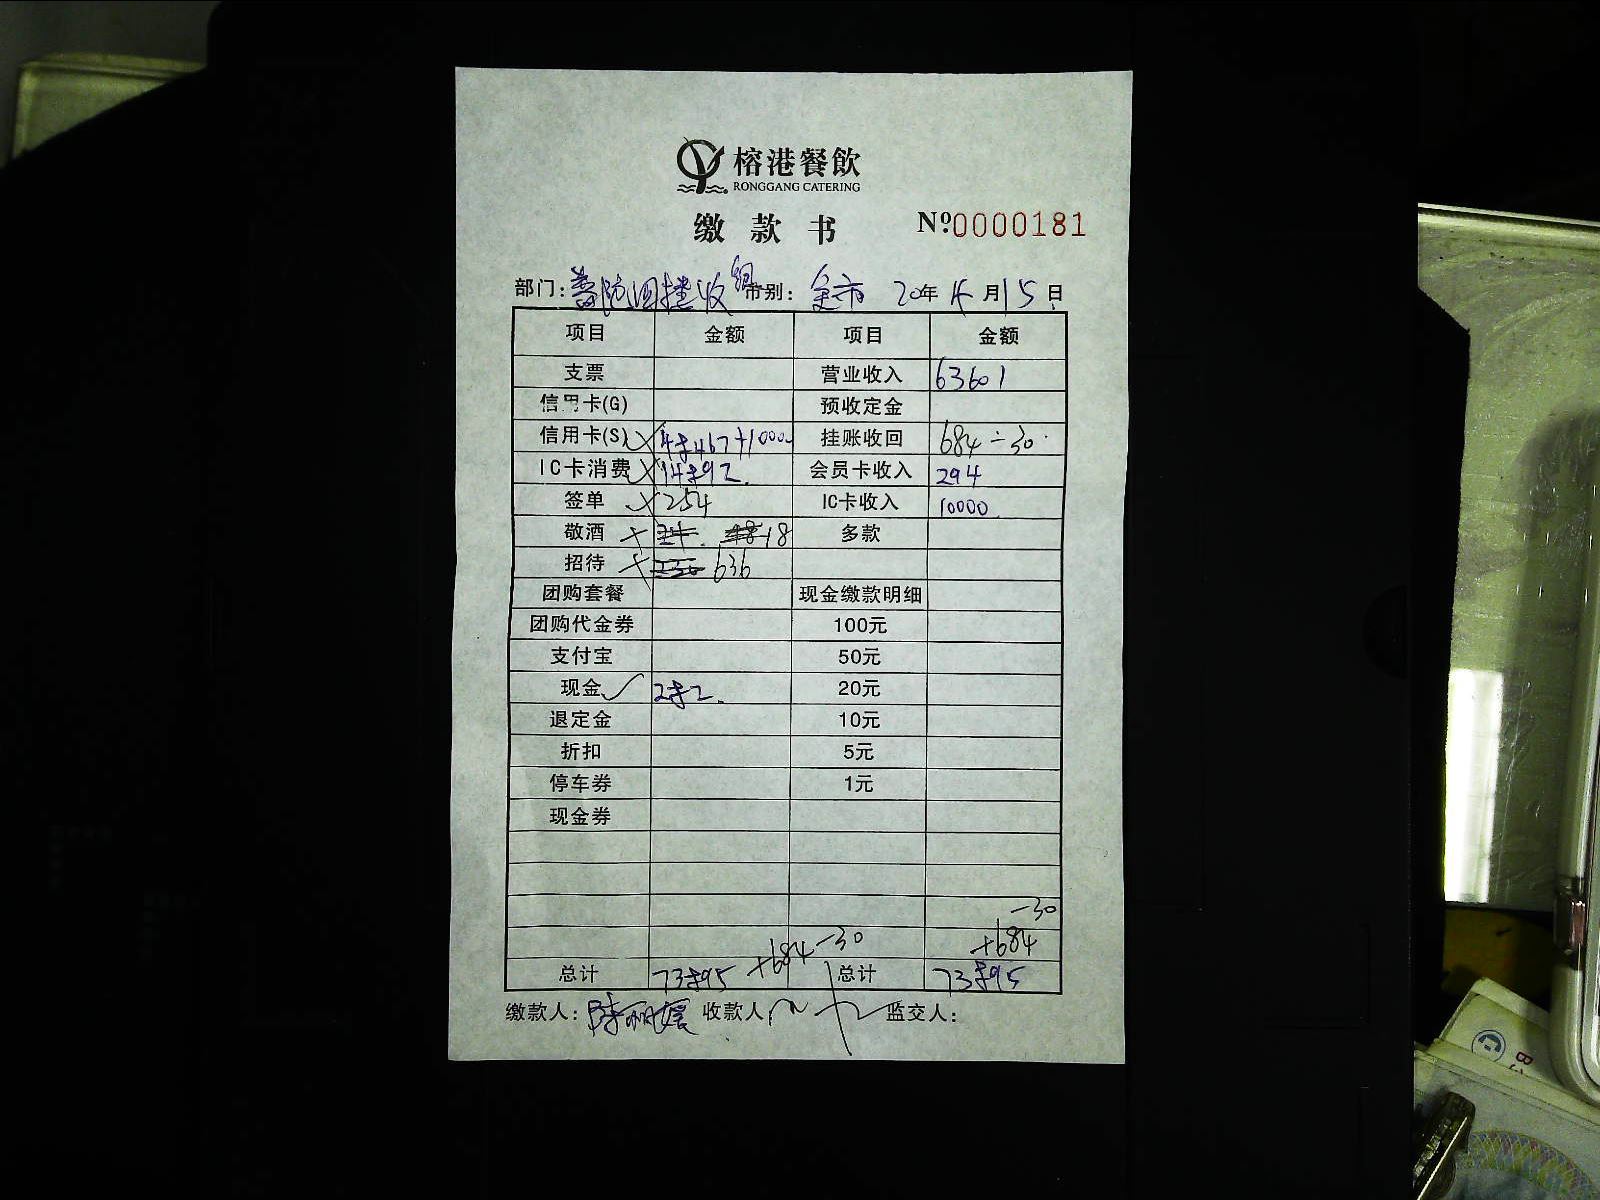 榕港餐飲
RONGGANG CATERING
缴款书 №0000181
部门: 收 市别: 全市 20年 月15日
项目 金额 项目 金额
支票 营业收入 63601
信用卡(G) 预收定金
信用卡(S) +1000 挂账收回 684-30
IC卡消费 会员卡收入 294
签单 254 IC卡收入 10000
敬酒 18 多款
招待 636
团购套餐 现金缴款明细
团购代金券 100元
支付宝 50元
现金 20元
退定金 10元
折扣 5元
停车券 1元
现金券
-30
+684-30 +684
总计 73895 总计 73895
缴款人: 收款人 监交人: